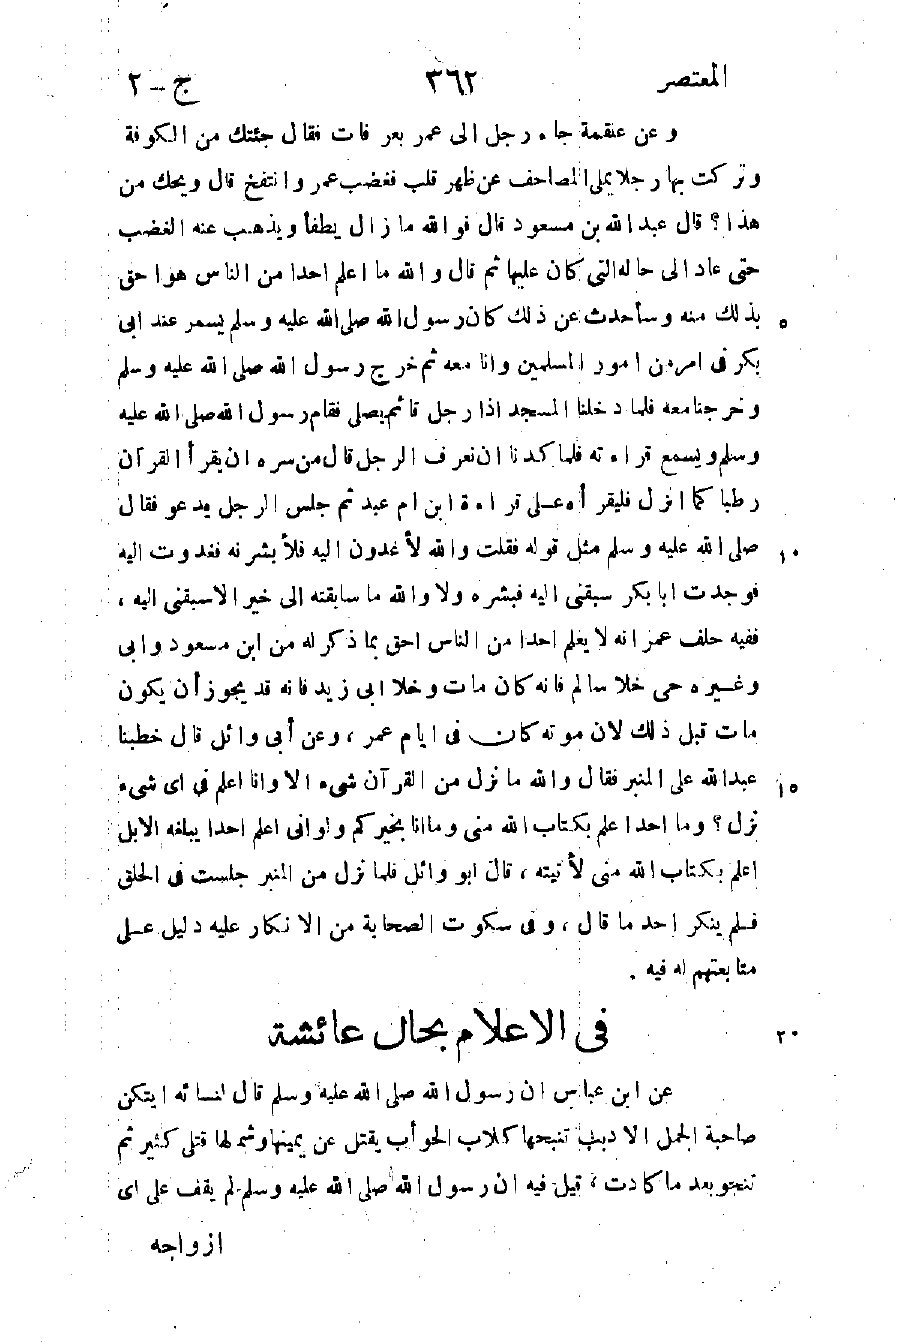 المعتصر ٣٦٢ ج – ٢
وعن علقمة جاء رجل الى عمر بعرفات فقال جئتك من الكوفة
وتركت بها رجلا يملى المصاحف عن ظهر قلب فغضب عمر وانتفخ قال ويحك من
هذا؟ قال عبد الله بن مسعود قال فوالله ما زال يطفأ ويذهب عنه الغضب
حتى عاد الى حاله التى كان عليها ثم قال والله ما اعلم احدا من الناس هو احق
بذلك منه وسأحدثك عن ذلك كان رسول الله صلى الله عليه وسلم يسمر عند ابى ٥
بكر فى امر من امور المسلمين وانا معه ثم خرج رسول الله صلى الله عليه وسلم
وخرجنا معه فلما دخلنا المسجد اذا رجل قائم يصلى فقام رسول الله صلى الله عليه
وسلم ويسمع قراءته فلما كدنا ان نعرف الرجل قال من سره ان يقرأ القرآن
رطبا كما انزل فليقرأه على قراءة ابن ام عبد ثم جلس الرجل يدعو فقال
صلى الله عليه وسلم مثل قوله فقلت والله لأغدون اليه فلأبشرنه فغدوت اليه ١٠
فوجدت ابا بكر سبقنى اليه فبشره ولا والله ما سابقته الى خير الا سبقنى اليه ،
ففيه حلف عمر انه لا يعلم احدا من الناس احق بما ذكر له من ابن مسعود وابى
وغيره حى خلا سالم فانه كان مات وخلا ابى زيد فانه قد يجوز أن يكون
مات قبل ذلك لان موته كان فى ايام عمر ، وعن أبى وائل قال خطبنا
عبد الله على المنبر فقال والله ما نزل من القرآن شىء الا وانا اعلم فى اى شىء ١٥
نزل؟ وما احد اعلم بكتاب الله منى وما انا بخيركم ولو انى اعلم احدا يبلغه الابل
اعلم بكتاب الله منى لأتيته ، قال ابو وائل فلما نزل من المنبر جلست فى الحلق
فلم ينكر احد ما قال ، وفى سكوت الصحابة من الانكار عليه دليل على
متابعتهم له فيه .
فى الاعلام بحال عائشة ٢٠
عن ابن عباس ان رسول الله صلى الله عليه وسلم قال لنسائه ايتكن
صاحبة الجمل الادبب تنبحها كلاب الحوأب يقتل عن يمينها وشمالها قتلى كثير ثم
تنجو بعد ما كادت ، قيل فيه ان رسول الله صلى الله عليه وسلم لم يقف على اى
ازواجه